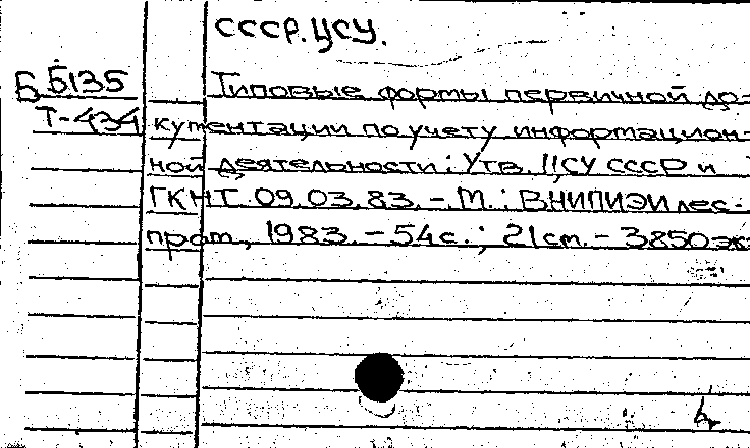 СССР. ЦСУ.
Б Б135
Т-434
Типовые формы первичной до-
кументации по учету информацион-
ной деятельности: Утв. ЦСУ СССР и
ГКНТ 09.03.83. - М.: ВНИПИЭИлес-
пром, 1983. - 54с.; 21см. - 3850эк